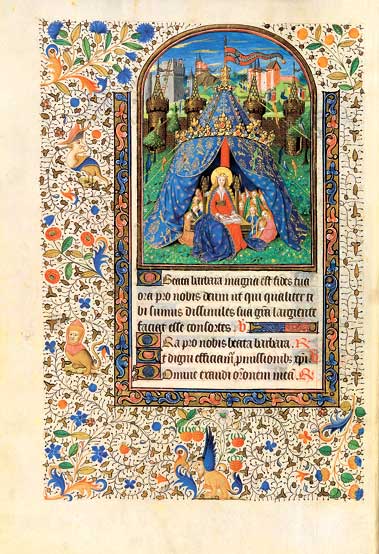 O Beata barbara magna est fides tua
ora pro nobis deum ut qui qualiter ti
bi sumus dissimiles sua gr̄a largiente
faciat esse consortes. V
Ora pro nobis beata barbara. R
Ut digni efficiam᷑ p̄missionibus xp̄i
Domine exaudi or̄onem meā. R